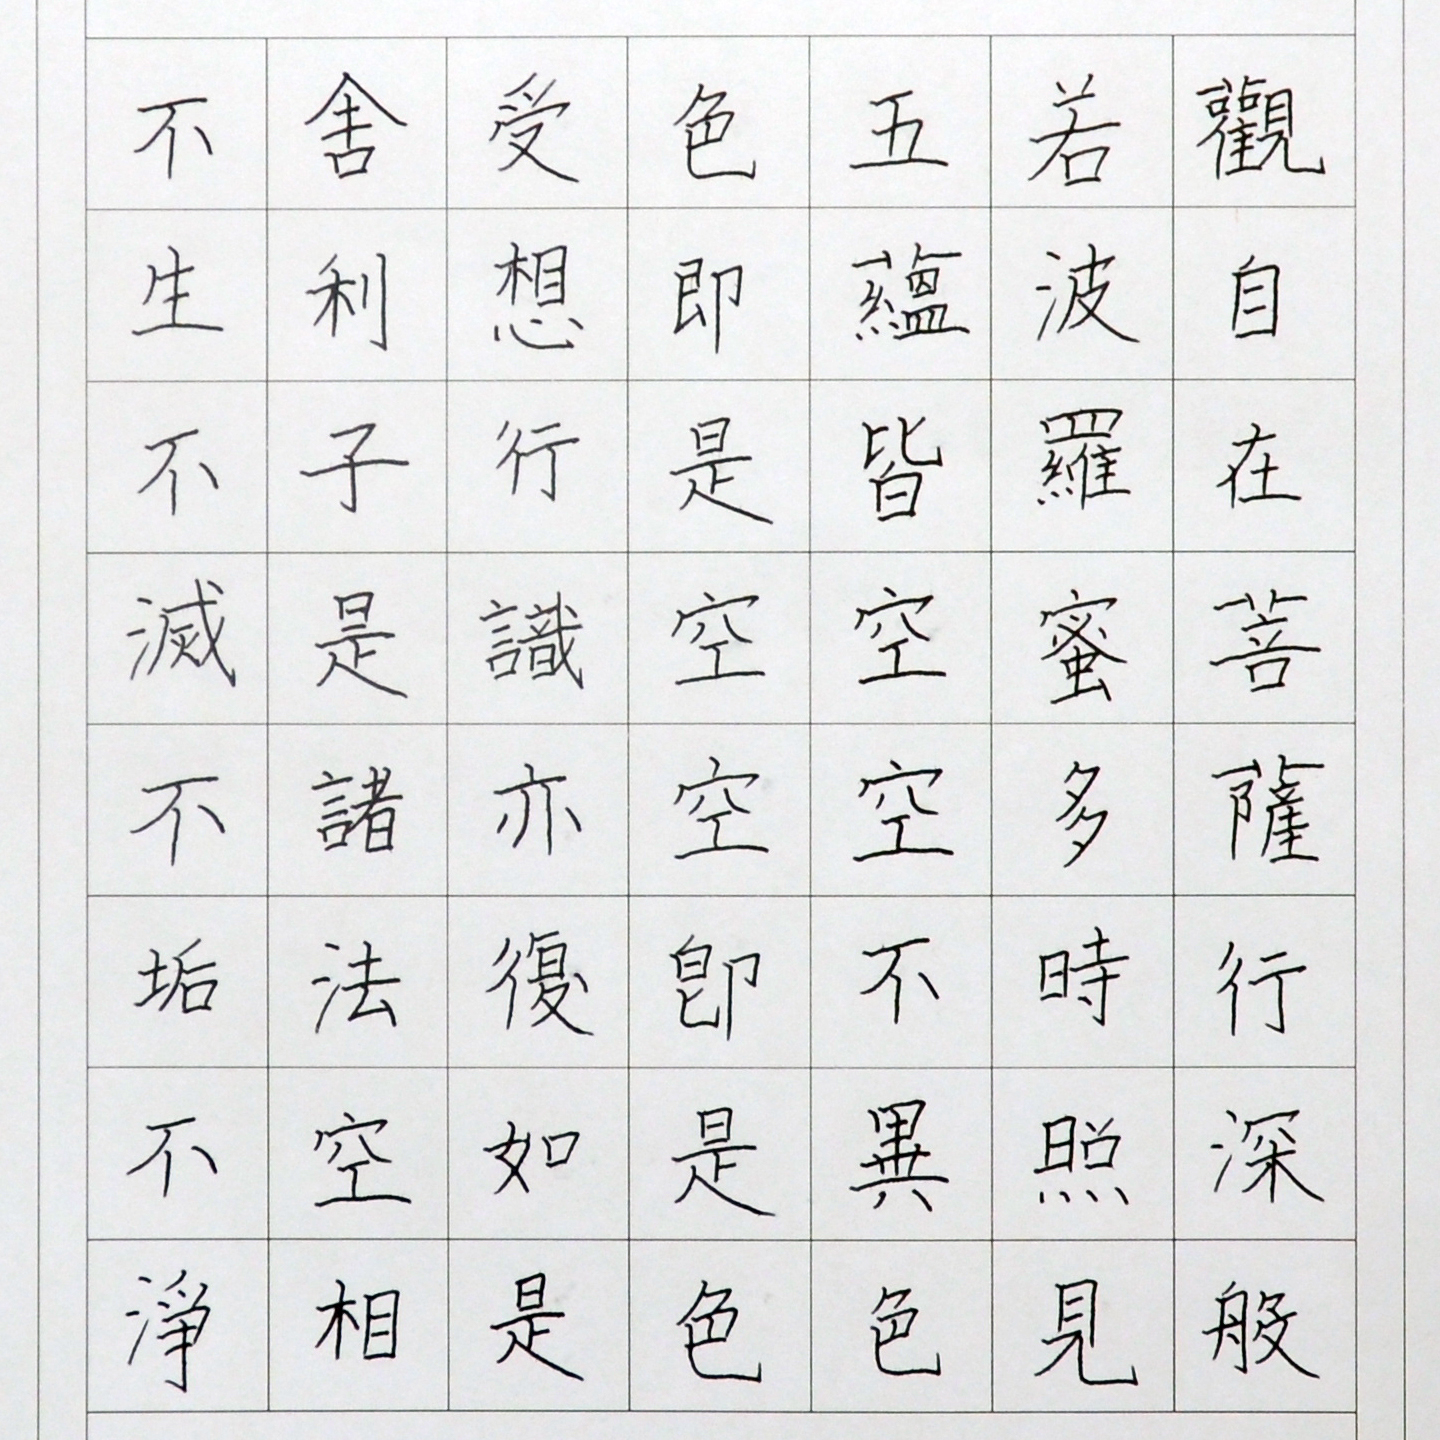 觀自在菩薩行深般
若波羅蜜多時照見
五蘊皆空空不異色
色即是空空即是色
受想行識亦復如是
舍利子是諸法空相
不生不滅不垢不淨